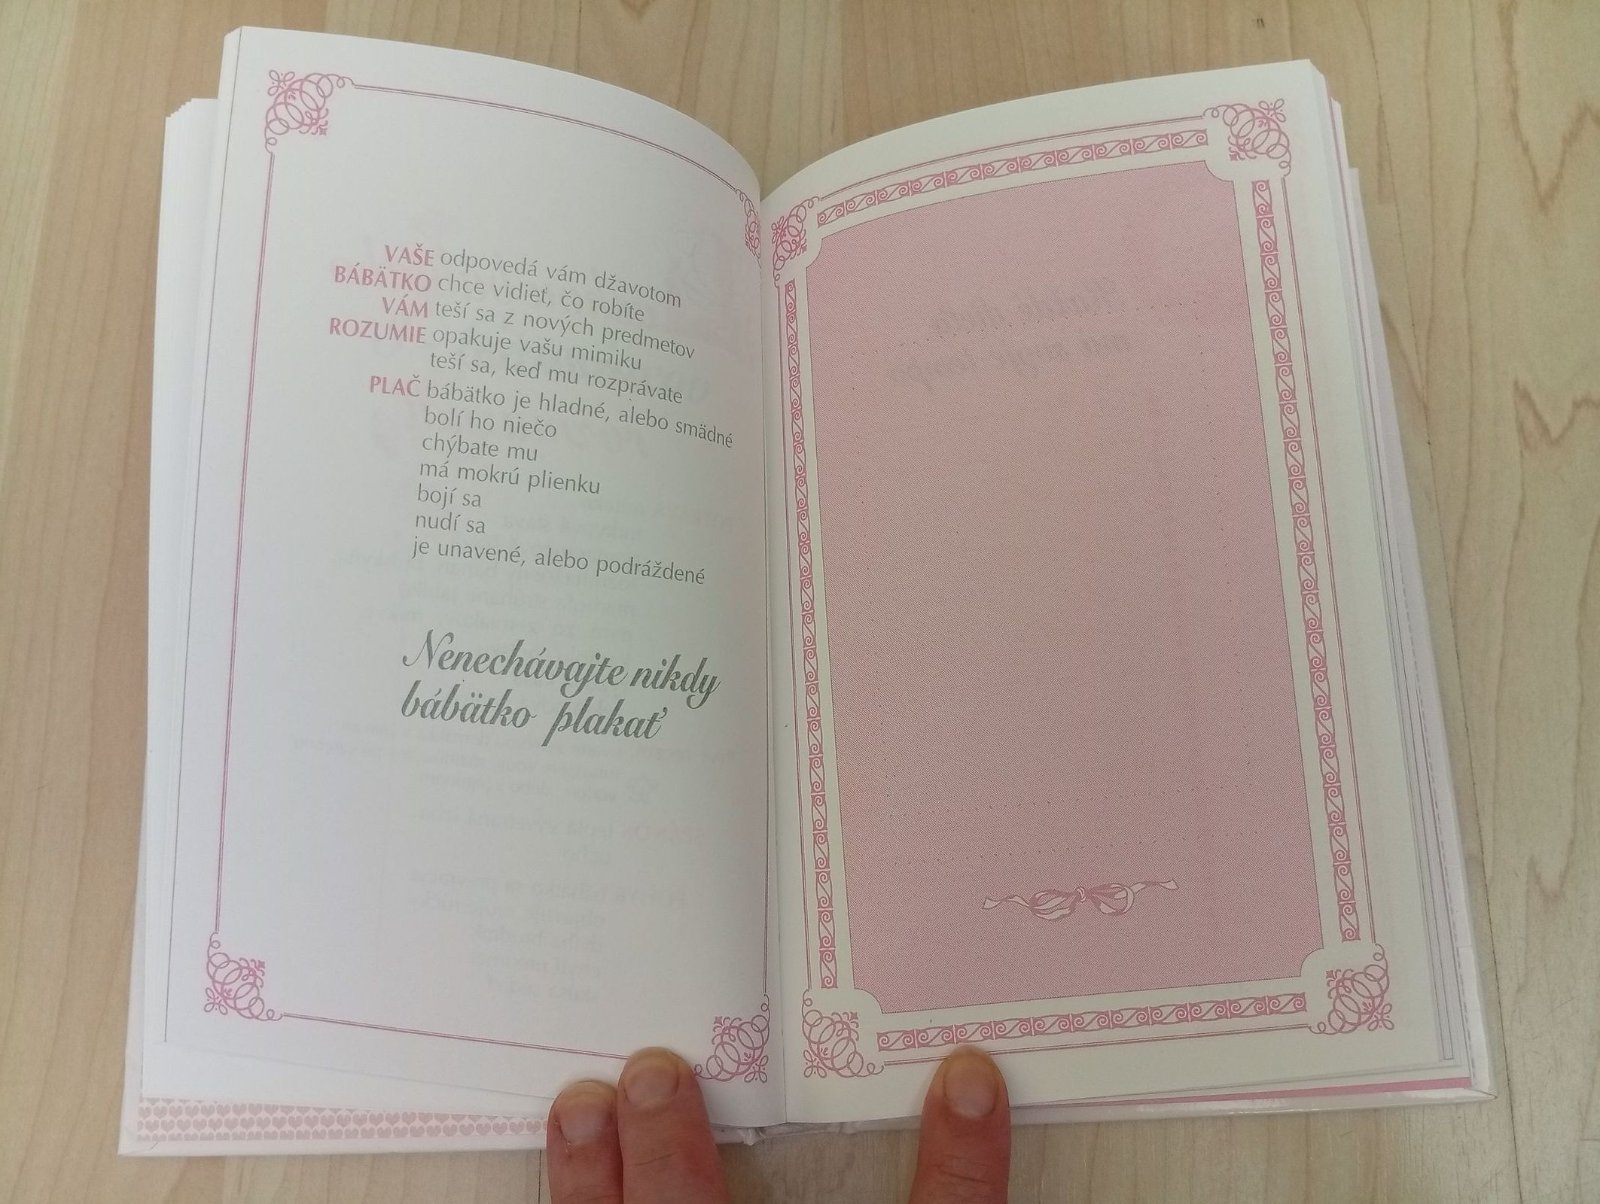 VAŠE odpovedá vám džavotom
BÁBÄTKO chce vidieť, čo robíte
VÁM teší sa z nových predmetov
ROZUMIE opakuje vašu mimiku
teší sa, keď mu rozprávate
PLAČ bábätko je hladné, alebo smädné
bolí ho niečo
chýbate mu
má mokrú plienku
bojí sa
nudí sa
je unavené, alebo podráždené
Nenechávajte nikdy
bábätko plakať